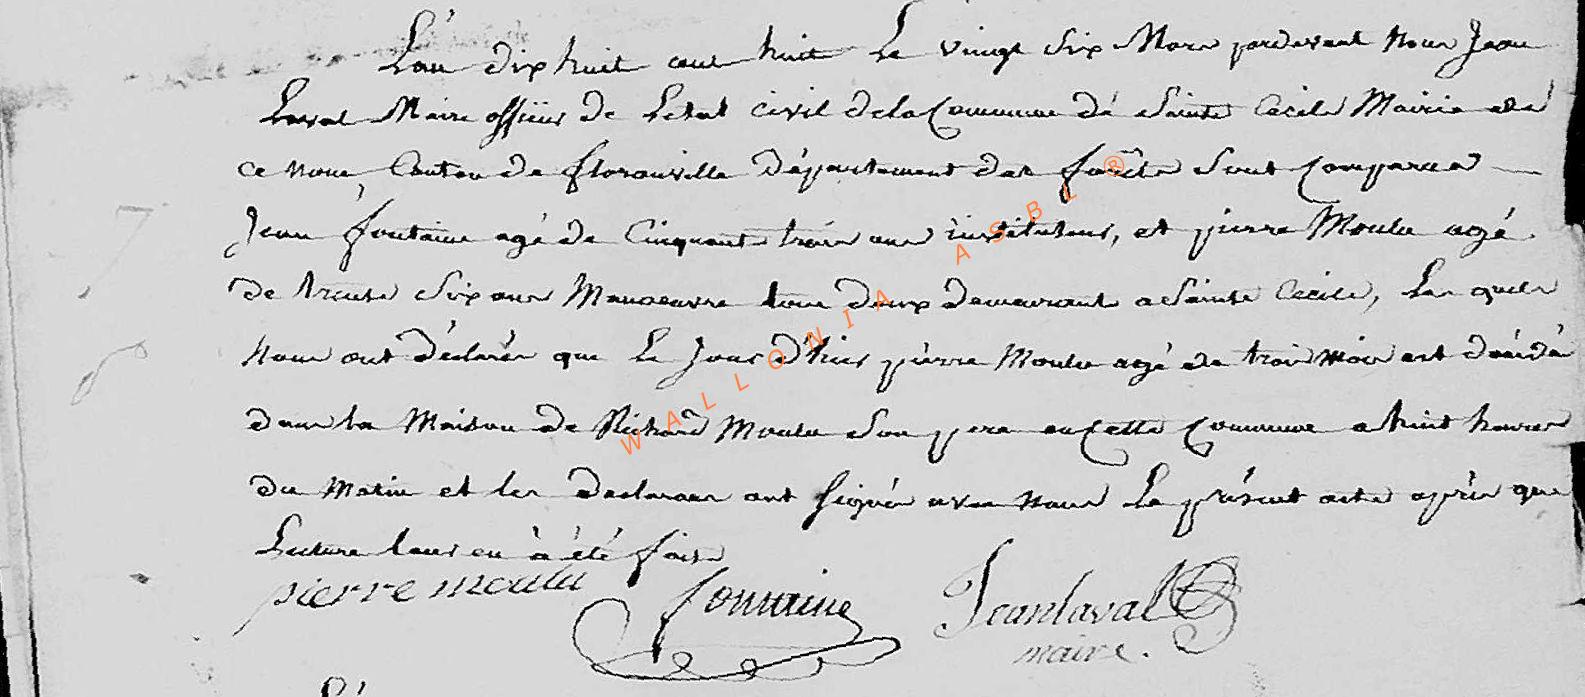 L'an dix huit cent huit Le vingt Six Mars pardevant Nous Jean
Laval Maire officier de Letat Civil dela Commune de Sainte Cecile Mairie de
ce nom, Canton de florenville Département des forêts Sont Comparus
Jean fontaine agé de Cinquante trois ans instituteur, et pierre Moulu agé
de trente Six ans Manoeuvre tous deux demeurant a Sainte Cecile, Les quels
nous ont déclarés que Le Jour d'hier pierre Moulu agé de trois mois est décédé
dans la Maison de Richard Moulu Son pere en Cette Commune a huit heures
du Matin et les declarans ont Signés avec nous Le présent acte après que
Lecture leur en à été faite
pierre moulu fontaine Jean laval
maire.
WALLONIA ASBL®